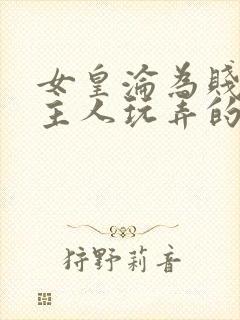 女皇淪為賤
主人玩弄的
狩野莉音